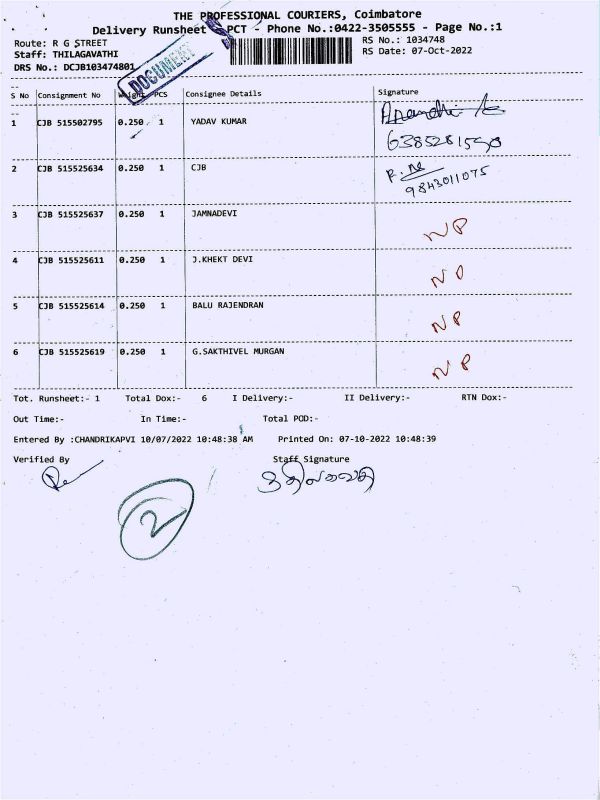 THE PROFESSIONAL COURIERS, Coimbatore
Delivery Runsheet - PCT - Phone No.:0422-3505555 - Page No.:1
Route: R G STREET RS No.: 1034748
Staff: THILAGAVATHI RS Date: 07-Oct-2022
DRS No.: DCJB103474801
DOCUMENT
S No Consignment No Weight PCS Consignee Details Signature
1 CJB 515502795 0.250 1 YADAV KUMAR
6385281590
2 CJB 515525634 0.250 1 CJB
9843011075
3 CJB 515525637 0.250 1 JAMNADEVI NP
4 CJB 515525611 0.250 1 J.KHEKT DEVI NP
5 CJB 515525614 0.250 1 BALU RAJENDRAN NP
6 CJB 515525619 0.250 1 G.SAKTHIVEL MURGAN NP
Tot. Runsheet:- 1 Total Dox:- 6 I Delivery:- II Delivery:- RTN Dox:-
Out Time:- In Time:- Total POD:-
Entered By :CHANDRIKAPVI 10/07/2022 10:48:38 AM Printed On: 07-10-2022 10:48:39
Verified By Staff Signature
திலகவதி
2